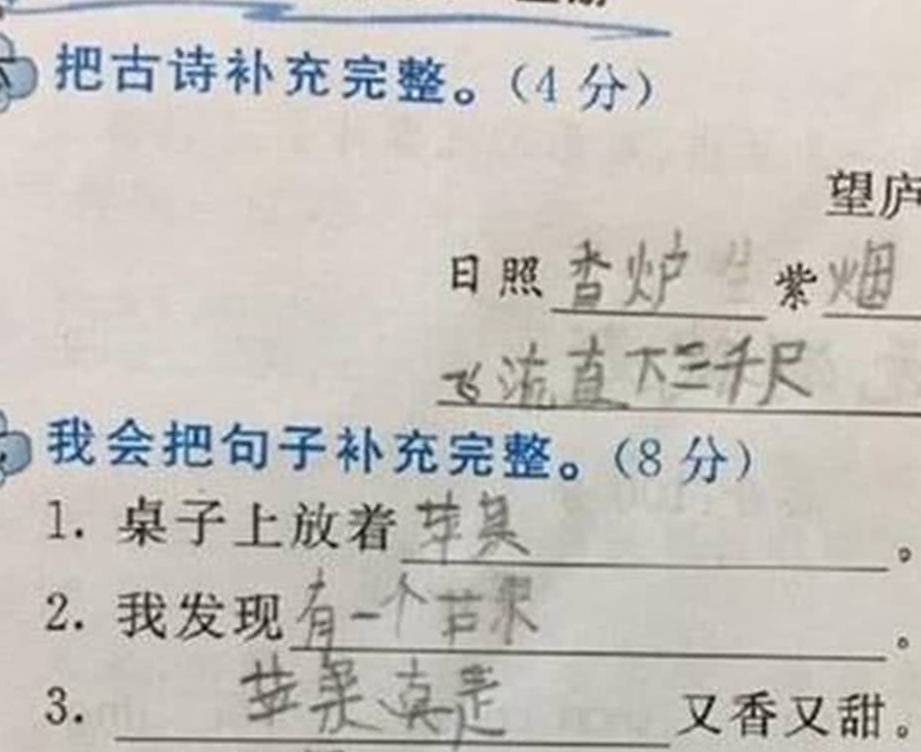 把古诗补充完整。(4 分)
望庐
日照香炉生紫烟
飞流直下三千尺
我会把句子补充完整。(8 分)
1. 桌子上放着苹果。
2. 我发现有一个苹果。
3. 苹果真是又香又甜。